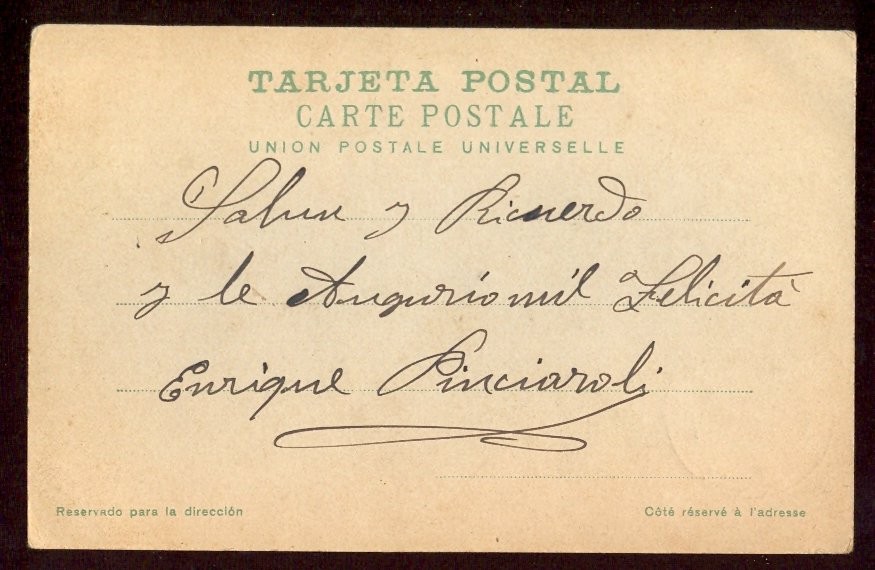 TARJETA POSTAL
CARTE POSTALE
UNION POSTALE UNIVERSELLE
Salun y Ricuerdo
y le Augurio mil Felicità
Enrique Pinciaroli
Reservado para la dirección
Côté réservé à l'adresse